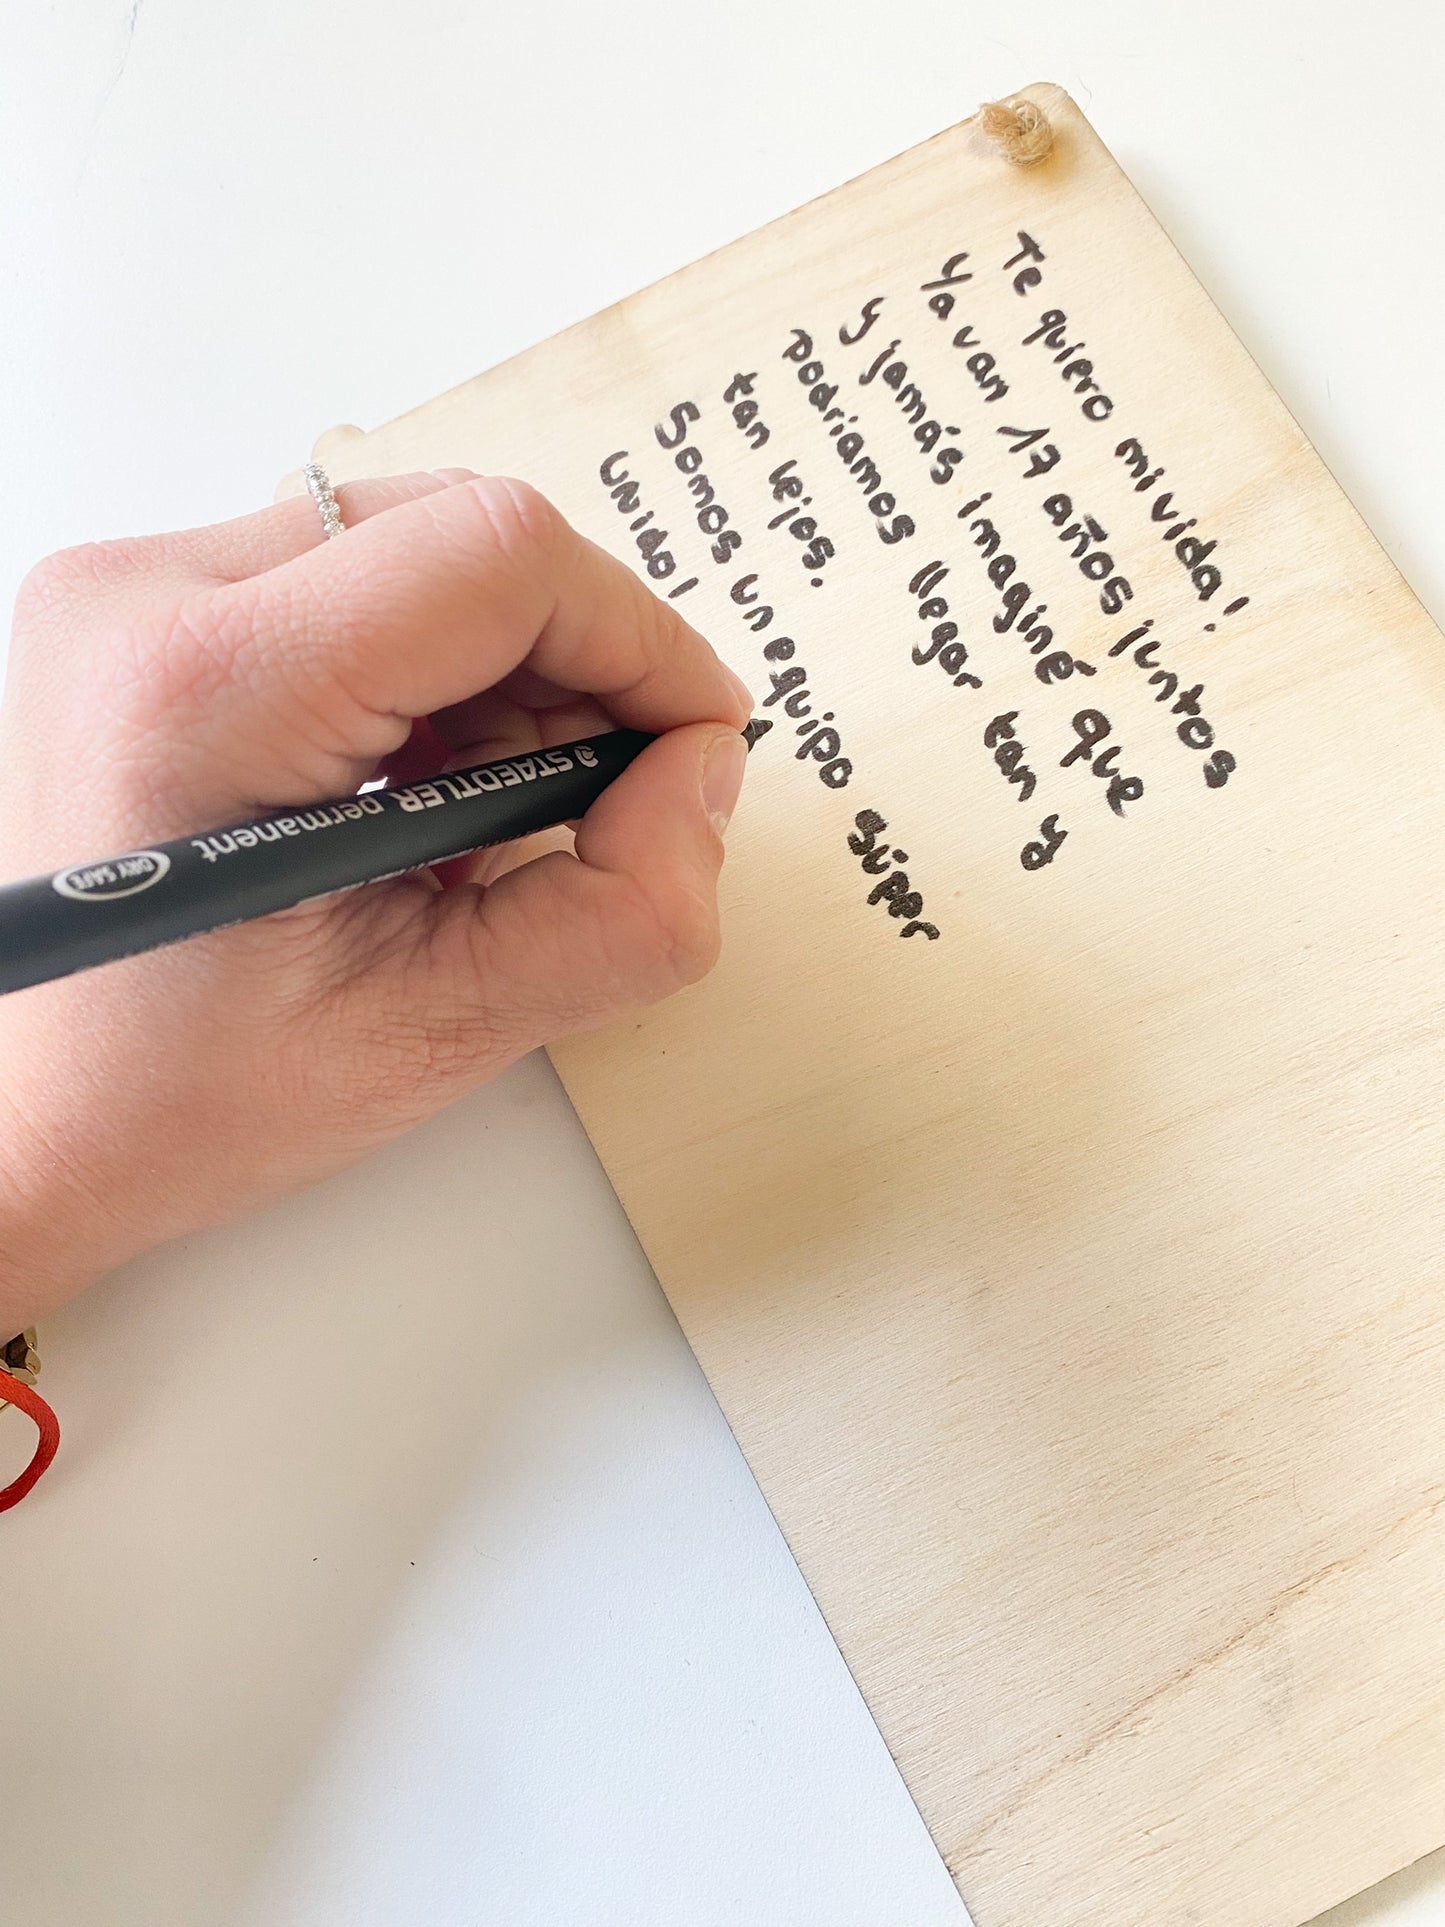 Te quiero mi vida!
Ya van 17 años juntos
y jamás imaginé que
podriamos llegar tan y
tan lejos.
Somos un equipo súper
unido!
STAEDTLER permanent
DRY SAFE